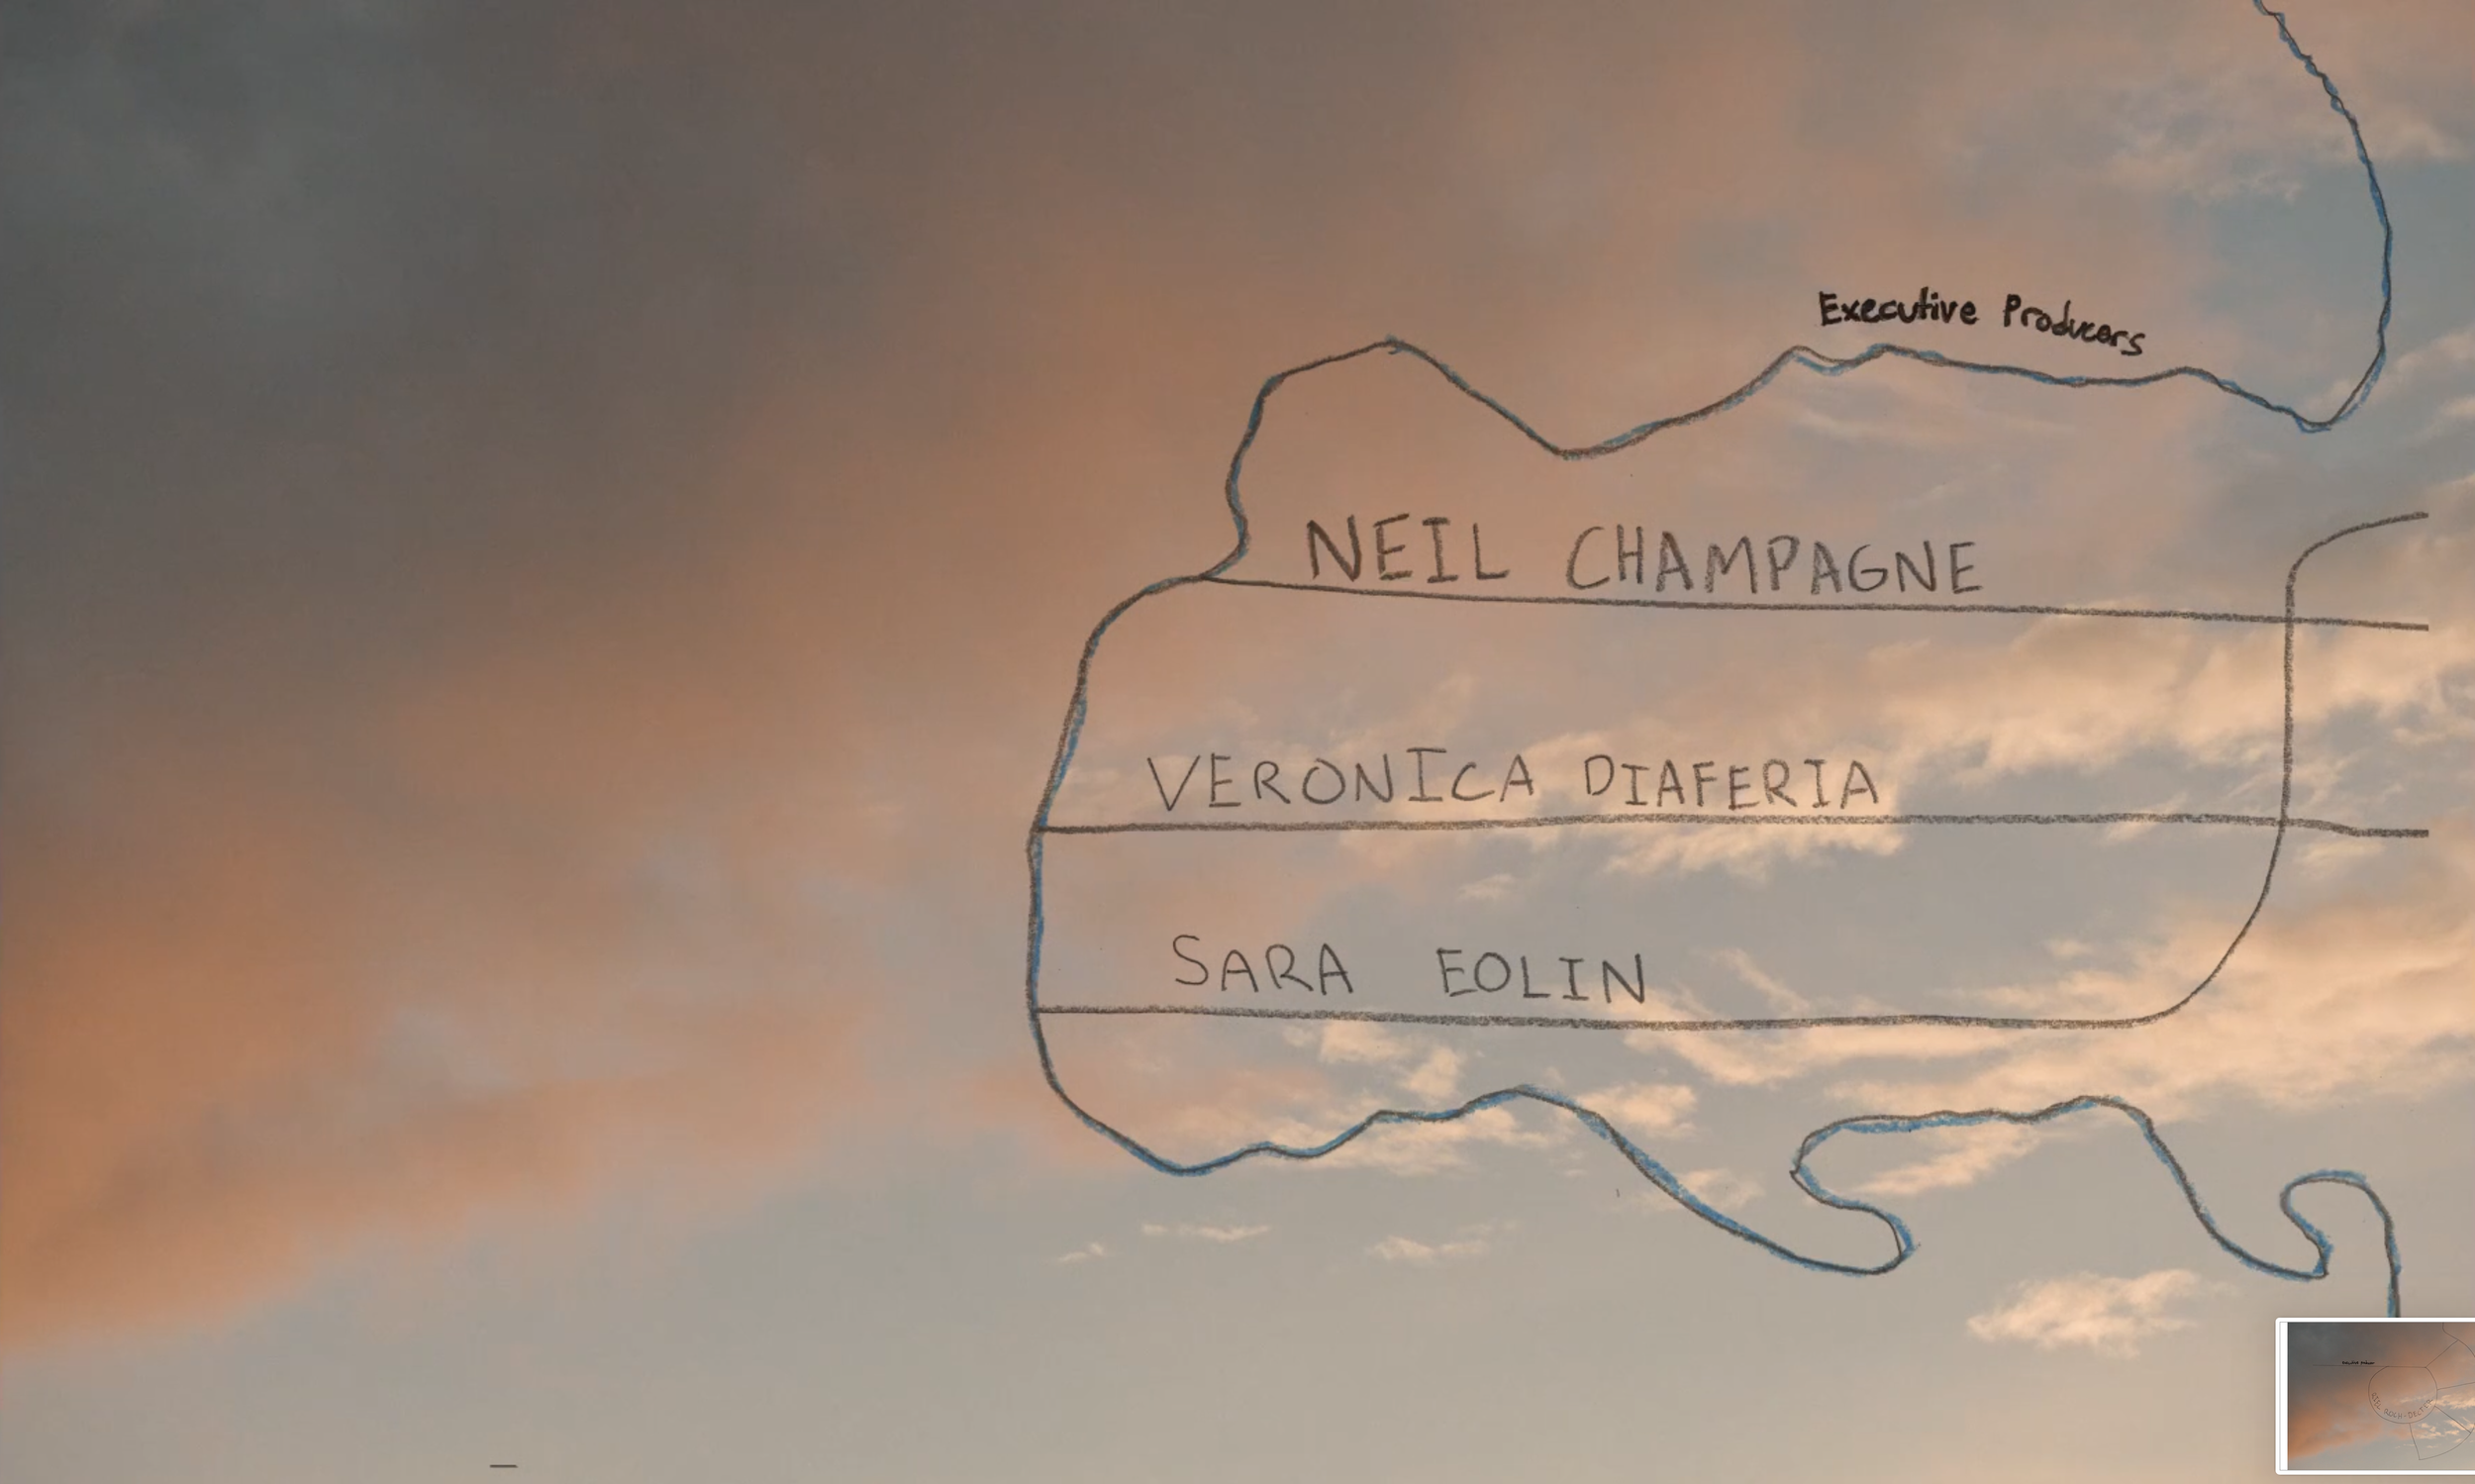 Executive Producers
NEIL CHAMPAGNE
VERONICA DIAFERIA
SARA EOLIN